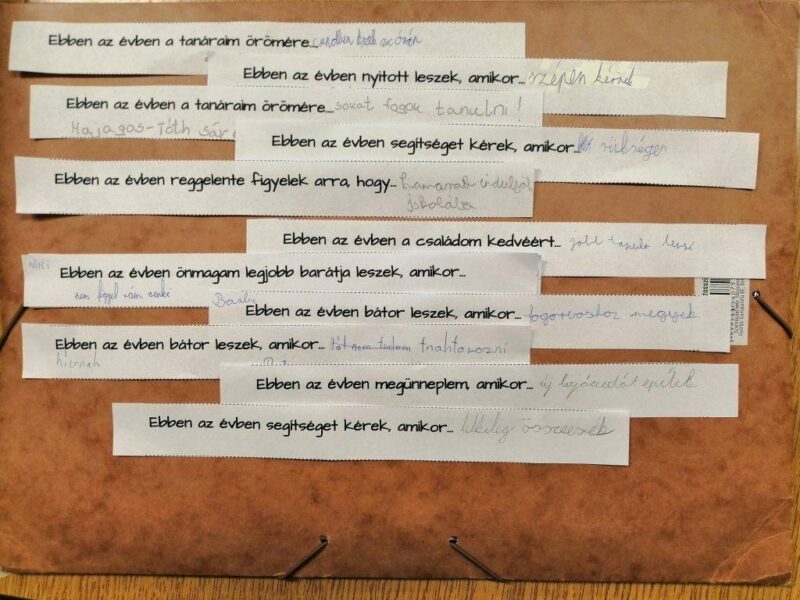 Ebben az évben a tanáraim örömére... csendben az órán
Ebben az évben nyitott leszek, amikor... szépen kérnek
Ebben az évben a tanáraim örömére... sokat fogok tanulni!
Hajagos-Tóth Sára
Ebben az évben segítséget kérek, amikor... szükséges
Ebben az évben reggelente figyelek arra, hogy... hamarabb induljak
iskolába
Ebben az évben a családom kedvéért... jobb tanuló leszek
Niki
Ebben az évben önmagam legjobb barátja leszek, amikor...
nem figyel rám senki
Ebben az évben bátor leszek, amikor... fogorvoshoz megyek
Ebben az évben bátor leszek, amikor...
hívnak
Ebben az évben megünneplem, amikor... új építek
Ebben az évben segítséget kérek, amikor... lelkileg összeesek